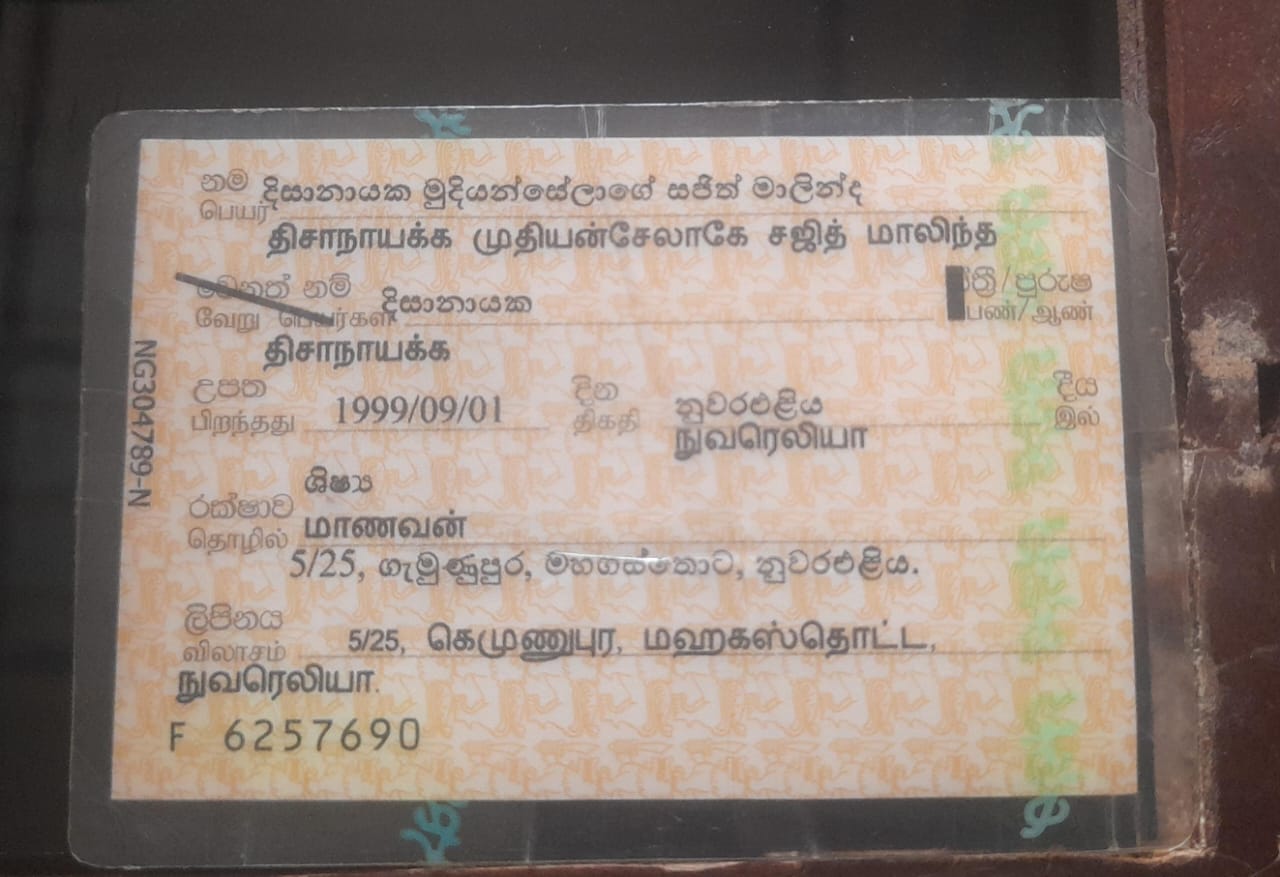 නම දිසානායක මුදියන්සේලාගේ සජිත් මාලින්ද
பெயர்
திசாநாயக்க முதியன்சேலாகே சஜித் மாலிந்த
වෙනත් නම් දිසානායක ස්ත්‍රී/පුරුෂ
வேறு பெயர்கள் பெண்/ஆண்
திசாநாயக்க
උපත 1999/09/01 දින නුවරඑළිය දීය
பிறந்தது திகதி நுவரெலியா இல்
ශිෂ්‍ය
රක්ෂාව
தொழில் மாணவன்
5/25, ගැමුණුපුර, මහගස්තොට, නුවරඑළිය.
ලිපිනය
விலாசம் 5/25, கெமுணுபுர, மஹகஸ்தொட்ட,
நுவரெலியா.
F 6257690
NG304789-N